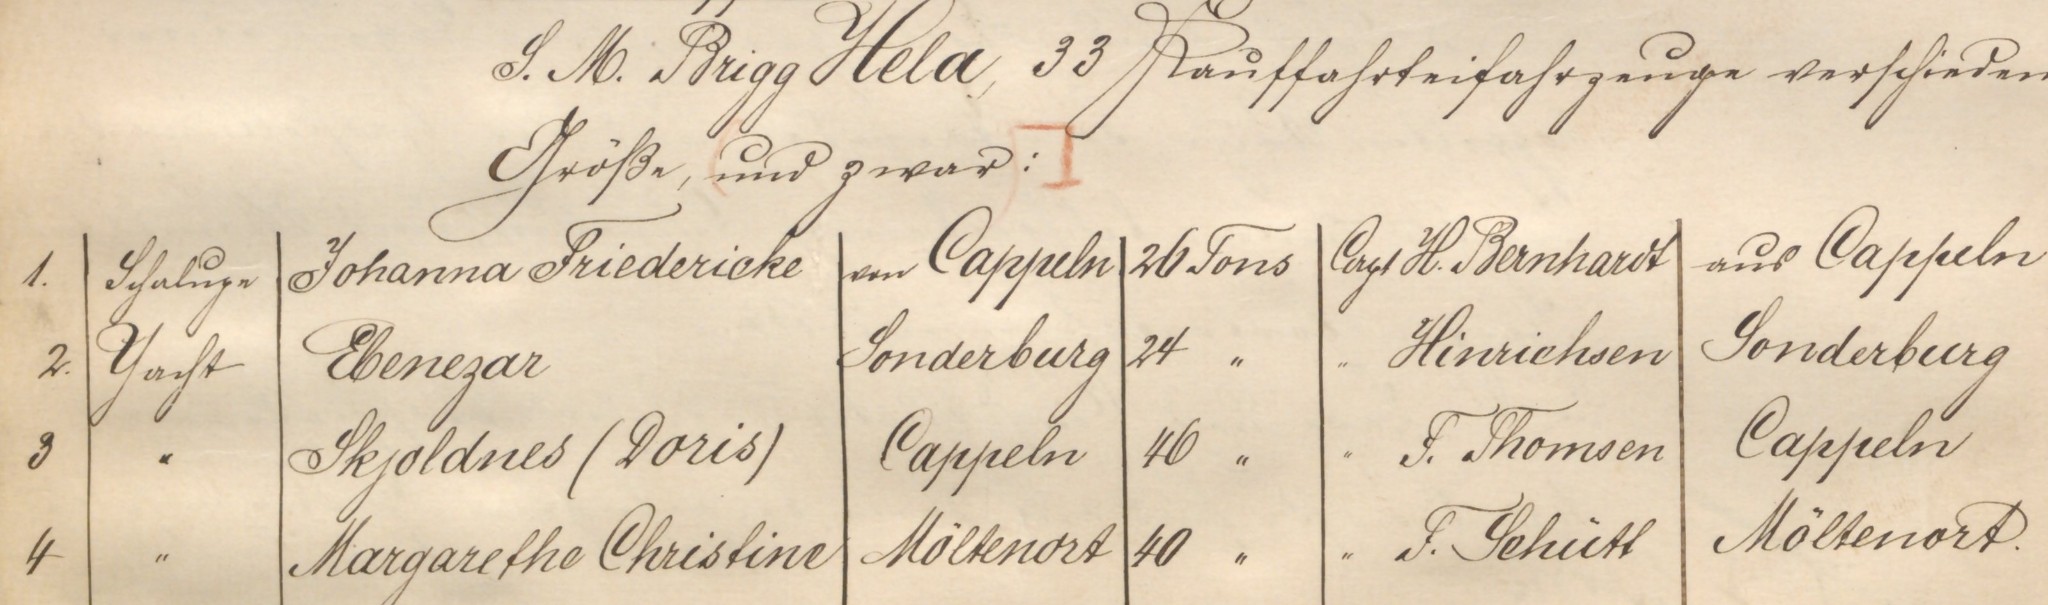 S. M. Brigg Hela, 33 Kauffahrteifahrzeuge verschieden
Größe, und zwar:
1. Schalupe Johanna Friedericke von Cappeln 26 Tons Capt H. Bernhardt aus Cappeln
2. Yacht Ebenezar Sonderburg 24 " " Hinrichsen Sonderburg
3 " Skjoldnes (Doris) Cappeln 46 " " F. Thomsen Cappeln
4 " Margarethe Christine Möltenort 40 " " F. Schütt Möltenort.